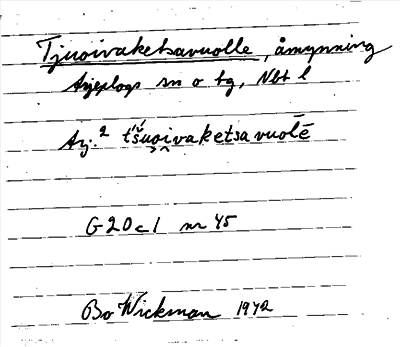 Tjuoivaketsavuolle, åmynning
Arjeplogs sn o tg, Nbt l
Arj.² t́šuo̭i̭vaketsavuolē
G20c1 nr 45
Bo Wickman 1972